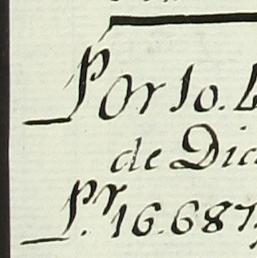 Por 10.
de Dic
P.r 16.687